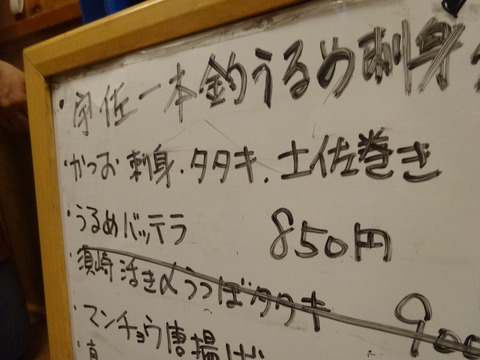 ・宇佐一本釣うるめ刺身
・かつお 刺身・タタキ・土佐巻き
・うるめバッテラ 850円
・須崎 活き〆うつぼタタキ 900
・マンチョウ唐揚げ